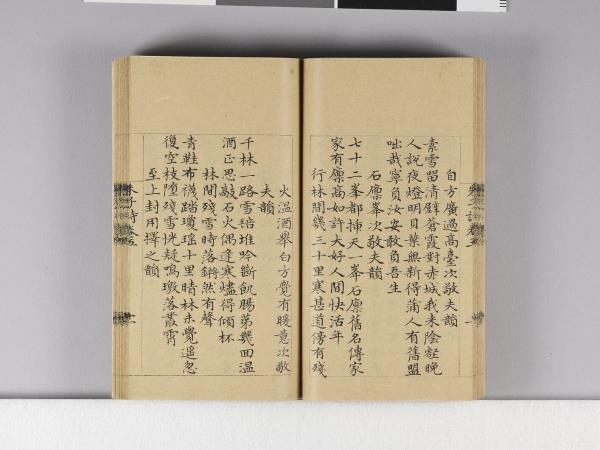 自方廣過高臺次敬夫韻
素雪留清壁蒼霞對赤城我来陰壑晚
人說夜燈明貝葉無新得蒲人有舊盟
咄哉寧負汝安敢負吾生
石廪峯次敬夫韻
七十二峯都揷天一峯石廪舊名傳家
家有廪高如許大好人間快活年
行林間幾三十里寒甚道傍有殘
火温酒舉白方覺有暖意次敬
夫韻
千林一路雪堆吟斷飢腸第幾回温
酒正思敲石火偶逢寒燼得傾杯
林間殘雪時落鏘然有聲
青鞋布襪踏瓊瑶十里晴林未覺遥忽
復空枝墮殘雪恍疑鳴璬落叢霄
至上封用擇之韻